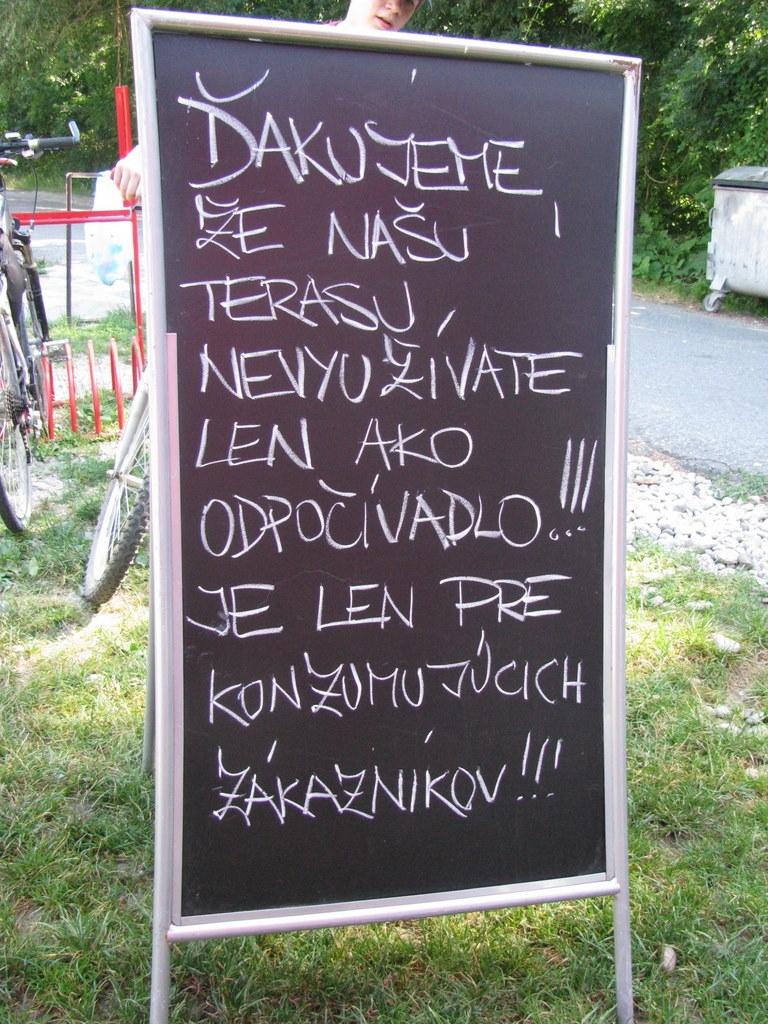 ĎAKUJEME,
ŽE NAŠU
TERASU
NEVYUŽÍVATE
LEN AKO
ODPOČÍVADLO!!!
JE LEN PRE
KONZUMUJÚCICH
ZÁKAZNÍKOV!!!